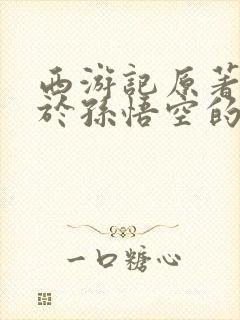 西游記原著
於孫悟空的
一口糖心